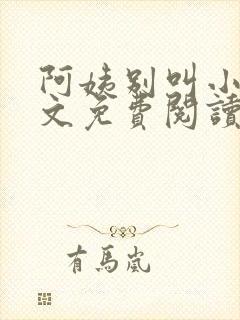 阿姨别叫小
文免費閱讀
有馬嵐